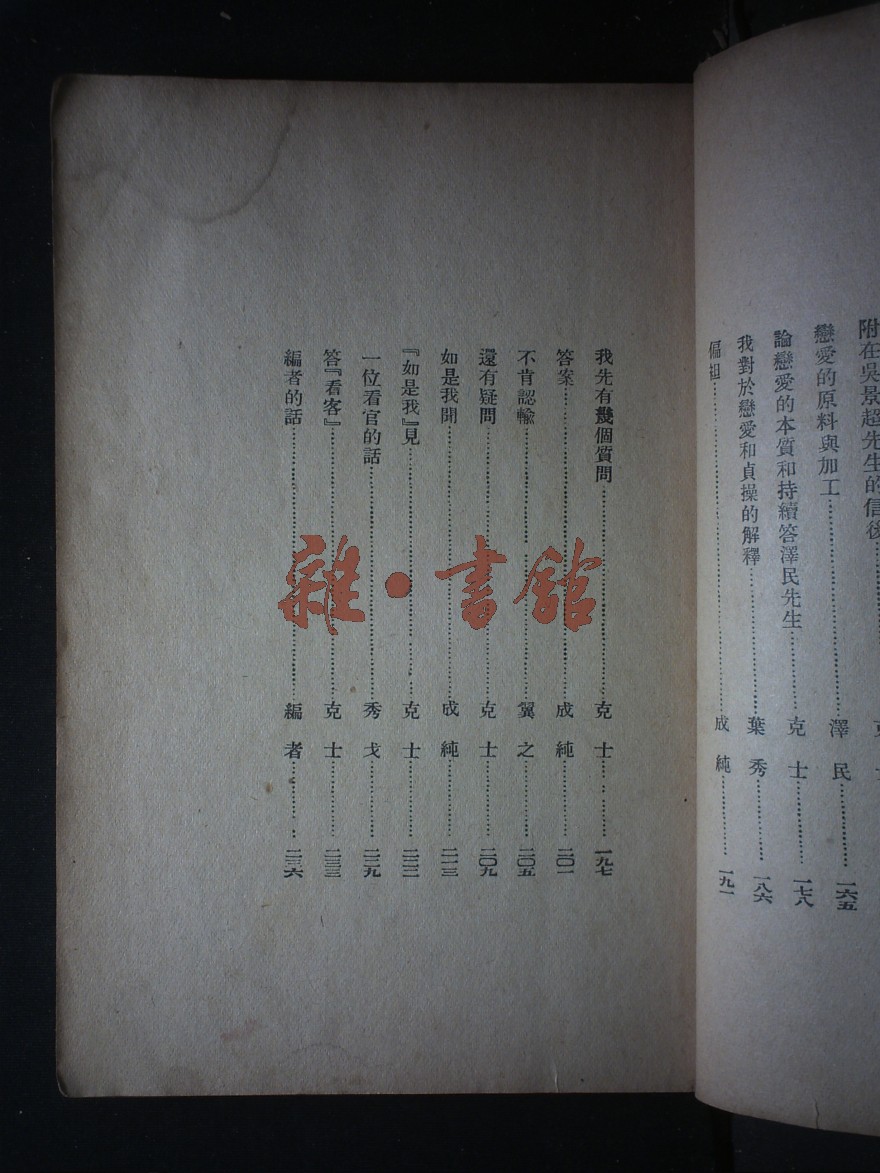 附在吳景超先生的信後
戀愛的原料與加工 澤民 一六五
論戀愛的本質和持續答澤民先生 克士 一七八
我對於戀愛和貞操的解釋 葉秀 一八六
偏袒 成純 一九一
我先有幾個質問 克士 一九七
答案 成純 二〇一
不肯認輸 翼之 二〇五
還有疑問 克士 二〇九
如是我聞 成純 二一三
『如是我』見 克士 二二二
一位看官的話 秀戈 二二九
答『看客』 克士 二三三
編者的話 編者 二三六
雜·書館